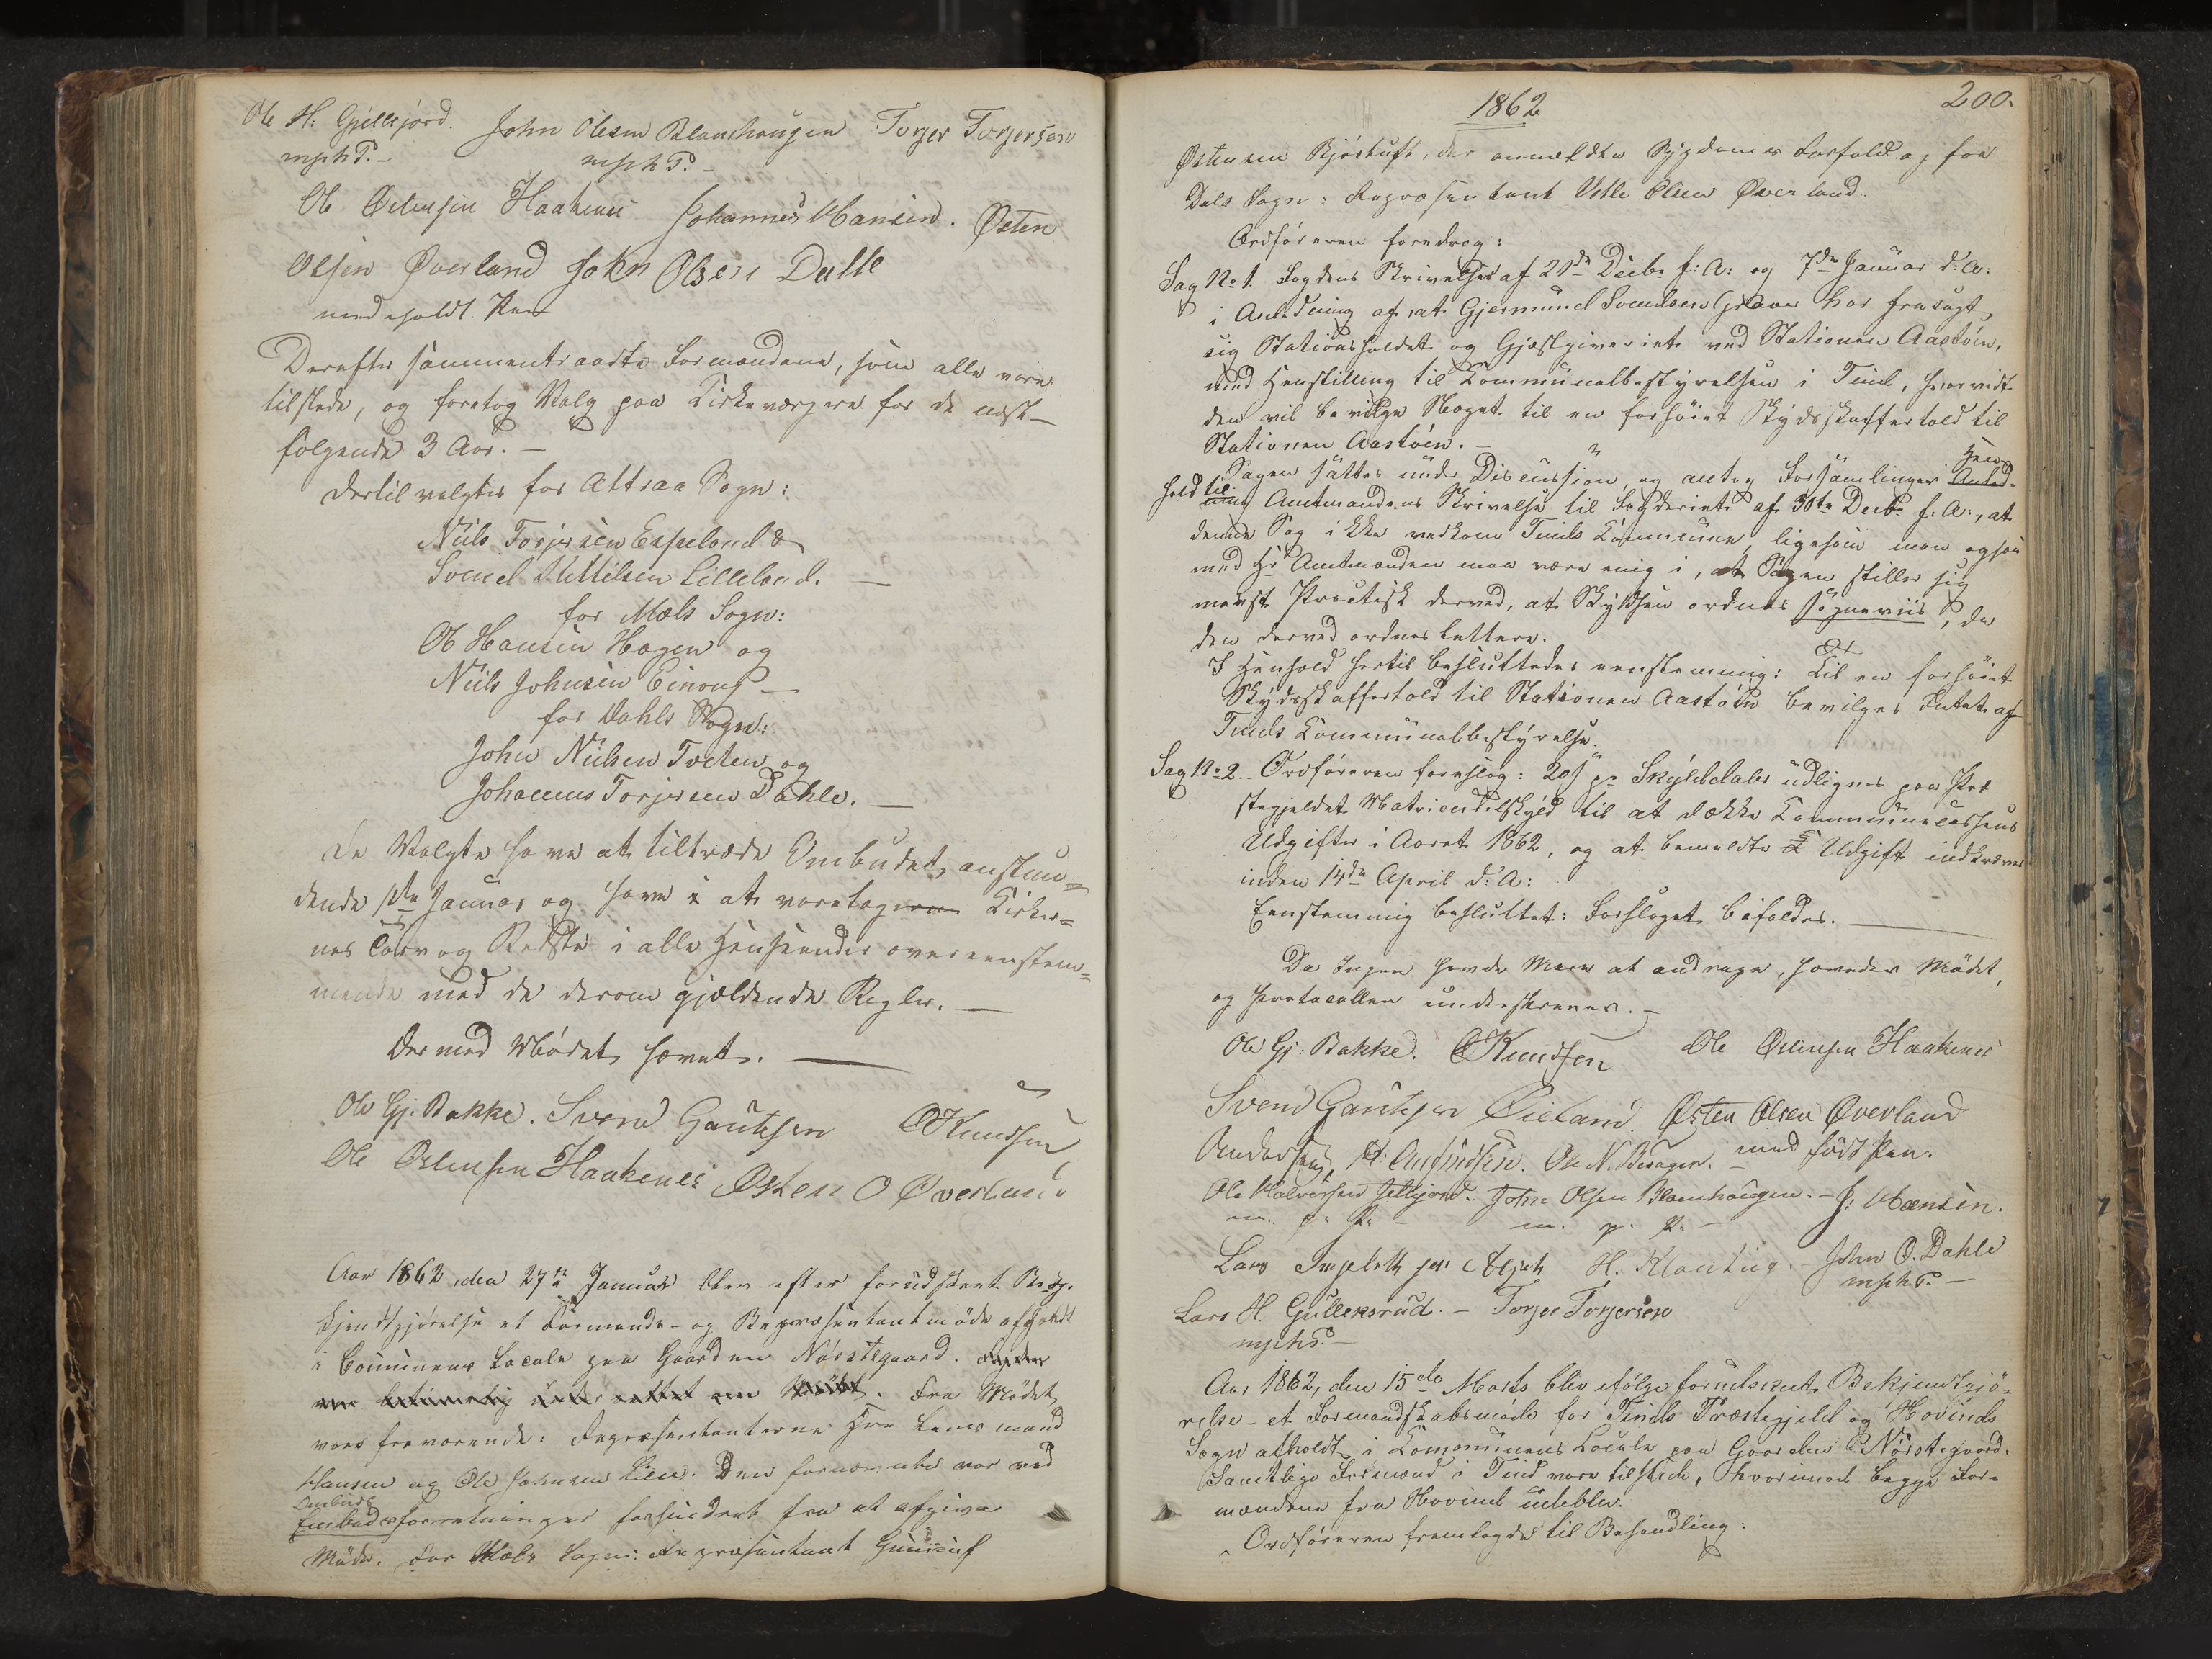 Ole H: Gjellesjord. John Olesen Blaauhaugen Torger Torgersen
mphP.- mphP.-
Ole Østensen Haakenes Johannes Hansen. Østen
Olsen Øverland John Olsen Dalle
med paaholdt Pen
Derefter sammentraadte Formændene, som alle vare
tilstede, og foretog Valg paa Kirkeværgere for de næst-
følgende 3 Aar. -
Dertil valgtes for Attraa Sogn:
Niels Torjersen Espeland &
Svend Kittilsen Lilleland. -
for Mæls Sogn:
Ole Hansen Hagen og
Niils Johnsen Einong -
for Dahls Sogn:
John Nielsen Traaen og
Johannes Torjersen Dahle. -
De Valgte have at tiltræde Ombudet, anstun=
dende 1ste Januar og have at varetage Kirker=
nes Tarv og Bedste i alle Henseender overeenstem=
mende med de derom gjældende Regler. -
Dermed Mødet hævet. -
Ole Gj. Bakke. Svend Gautesen OKnudsen
Ole Østensen Haakenes Østen O Øverland
Aar 1862 den 27de Januar blev efter forudskeet Be-
kjendtgjørelse et Formands- og Repræsentantmøde afholdt
i Communens Locale paa Gaarden Nørstegaard.
Fra Mødet
vare fraværende: Repræsentanterne Hrr Lensmand
Hansen og Ole Johnsen Lien. Den førnævnte var ved
Ombuds
Embedsforretninger forhindret fra at afgive
Møde. For Mæls Sogn: Repræsentant Gunleuf
1862
200.
Østensen Kjøstuft, der anmeldte Sygdoms Forfald og for
Dals Sogn: Repræsentant Vetle Olsen Øverland.
Ordføreren foredrog:
Sag No 1. Fogdens Skrivelser af 21de Decbr f: A: og 7de Januar d: A:
i Anledning af at Gjermund Svendsen Graver har frasagt
sig Stationsholdet og Gjæstgiveriet ved Stationen Aastøen,
med Henstilling til Kommunalbestyrelsen i Tind, hvorvidt
den vil bevilge Noget til en forhøiet Skydsskaffertold til
Stationen Aastøen. -
Hen-
Sagen sattes under Discussion, og antog Forsamlingen Anled-
hold til
ning Amtmandens Skrivelse til Fogderiet af 30te Decb: f: A:, at
denne Sag ikke vedkom Tinds Kommune, ligesom man ogsaa
med Hr Amtmanden maa være enig i, at Sagen stiller sig
meest Practisk derved, at Skydsen ordnes sogneviis, da
den derved ordnes lettere.
I Henhold hertil besluttedes eenstemmig: Til en forhøiet
Skydsskaffertold til Stationen Aastøen bevilges Intet af
Tinds Kommunalbestyrelse.
Sag No 2. Ordføreren foreslog: 20ß pr Skylddaler udlignes paa Præ-
stegjeldets Matriculskyld til at dække Kommunecassens
Udgifter i Aaret 1862, og at bemeldte Udgift indkræves
inden 14de April d: A:
Eenstemmig besluttet: Forslaget bifaldes. -
Da Ingen havde Mere at andrage, hævedes Mødet,
og Protocollen underskreves. -
Ole Gj: Bakke. OKnudsen Ole Østensen Haakenes
Svend Gautesen Øieland. Østen Olsen Øverland
med ført Pen.
Ole N. Bergen.
Ole Halvorsen John Olsen Blaauhaugen. - J: Hansen.
m. p. P. - m. p. P. -
Lars H. John O. Dahle
mphP. -
Lars H. Gulleksrud. - Torger Torgersen
mphP. -
Aar 1862, den 15de Marts blev ifølge forudskeet Bekjendtgjø-
relse et Formandskabsmøde for Tinds Præstegjeld og Hovinds
Sogn afholdt i Kommunens Locale paa Gaarden Nørstegaard.
Samtlige Formænd i Tind vare tilstede, hvorimod begge For-
mændene fra Hovind udeblev.
Ordføreren fremlagde til Behandling: